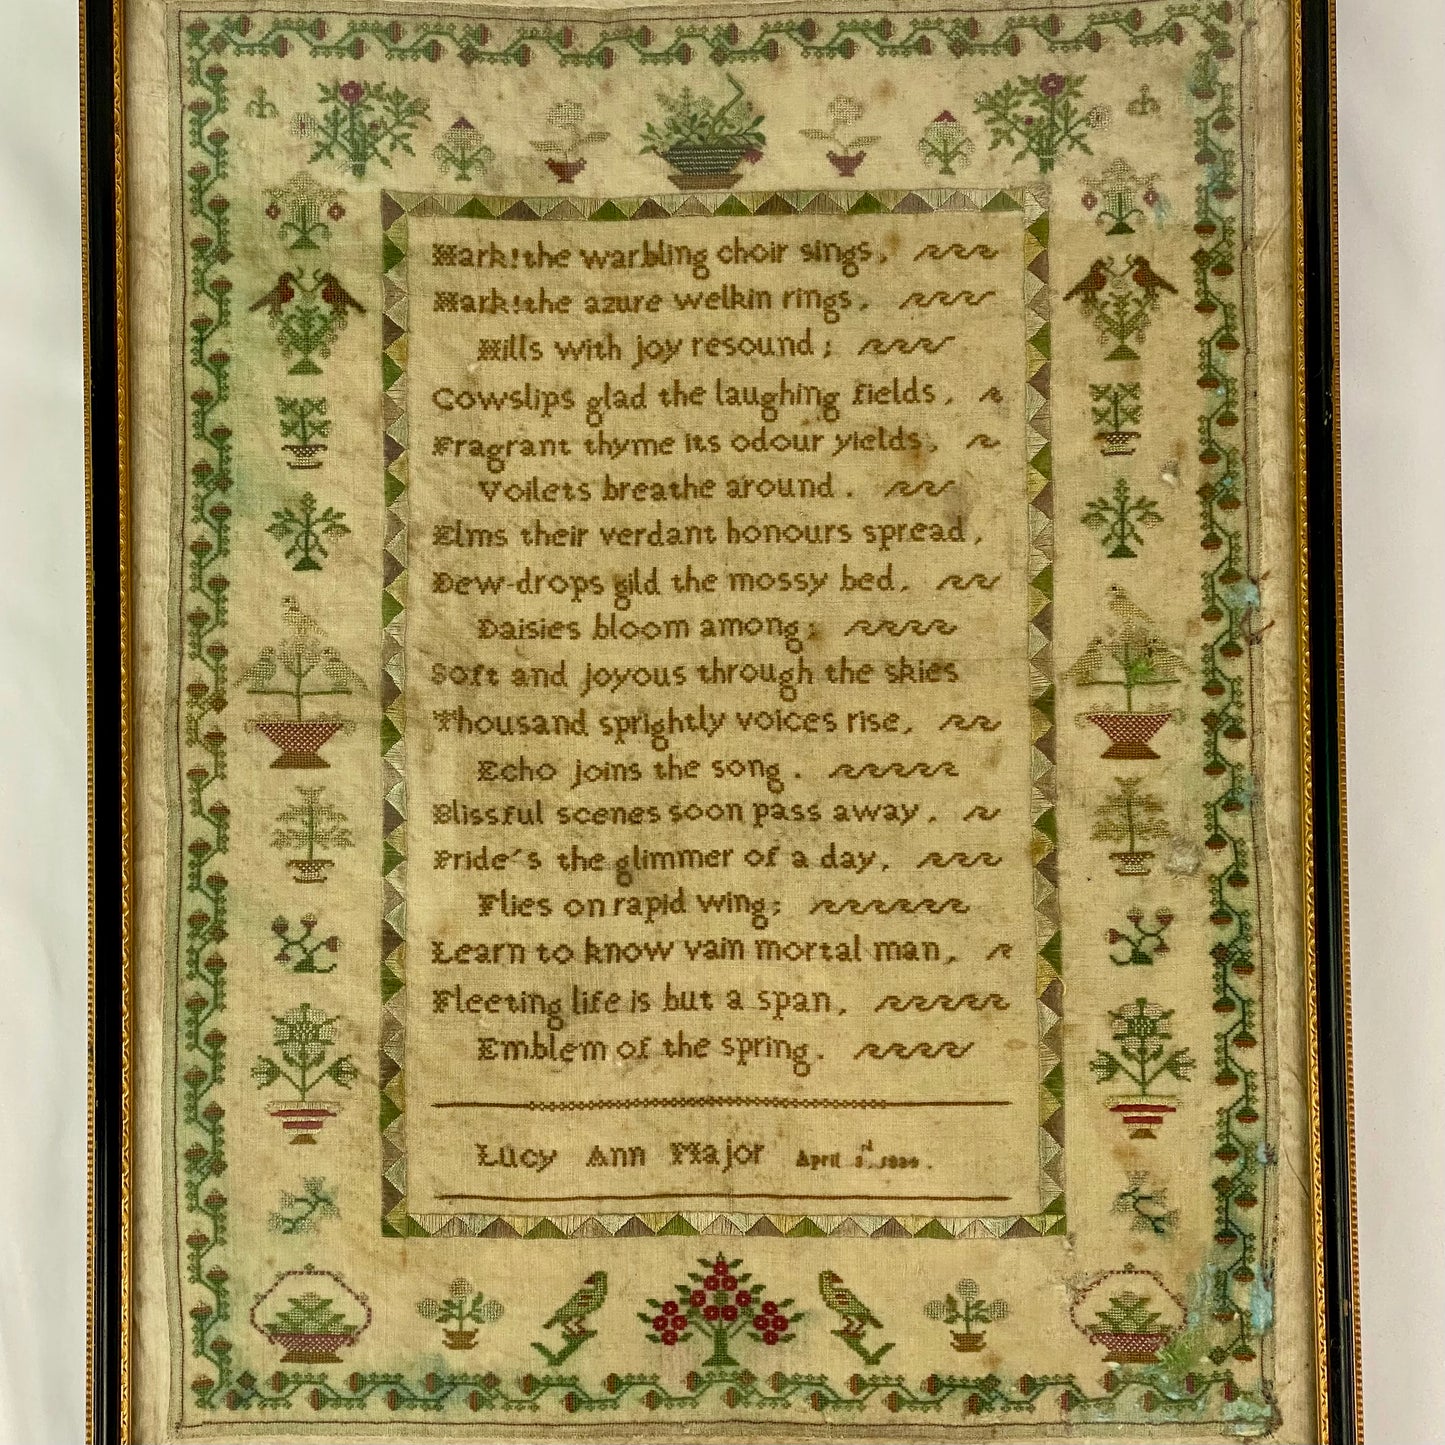 Hark! the warbling choir sings,
Hark! the azure welkin rings,
Hills with joy resound;
Cowslips glad the laughing fields,
Fragrant thyme its odour yields,
Voilets breathe around.
Elms their verdant honours spread,
Dew-drops gild the mossy bed,
Daisies bloom among;
Soft and joyous through the skies
Thousand sprightly voices rise,
Echo joins the song.
Blissful scenes soon pass away,
Pride's the glimmer of a day,
Flies on rapid wing;
Learn to know vain mortal man,
Fleeting life is but a span,
Emblem of the spring.
Lucy Ann Major April